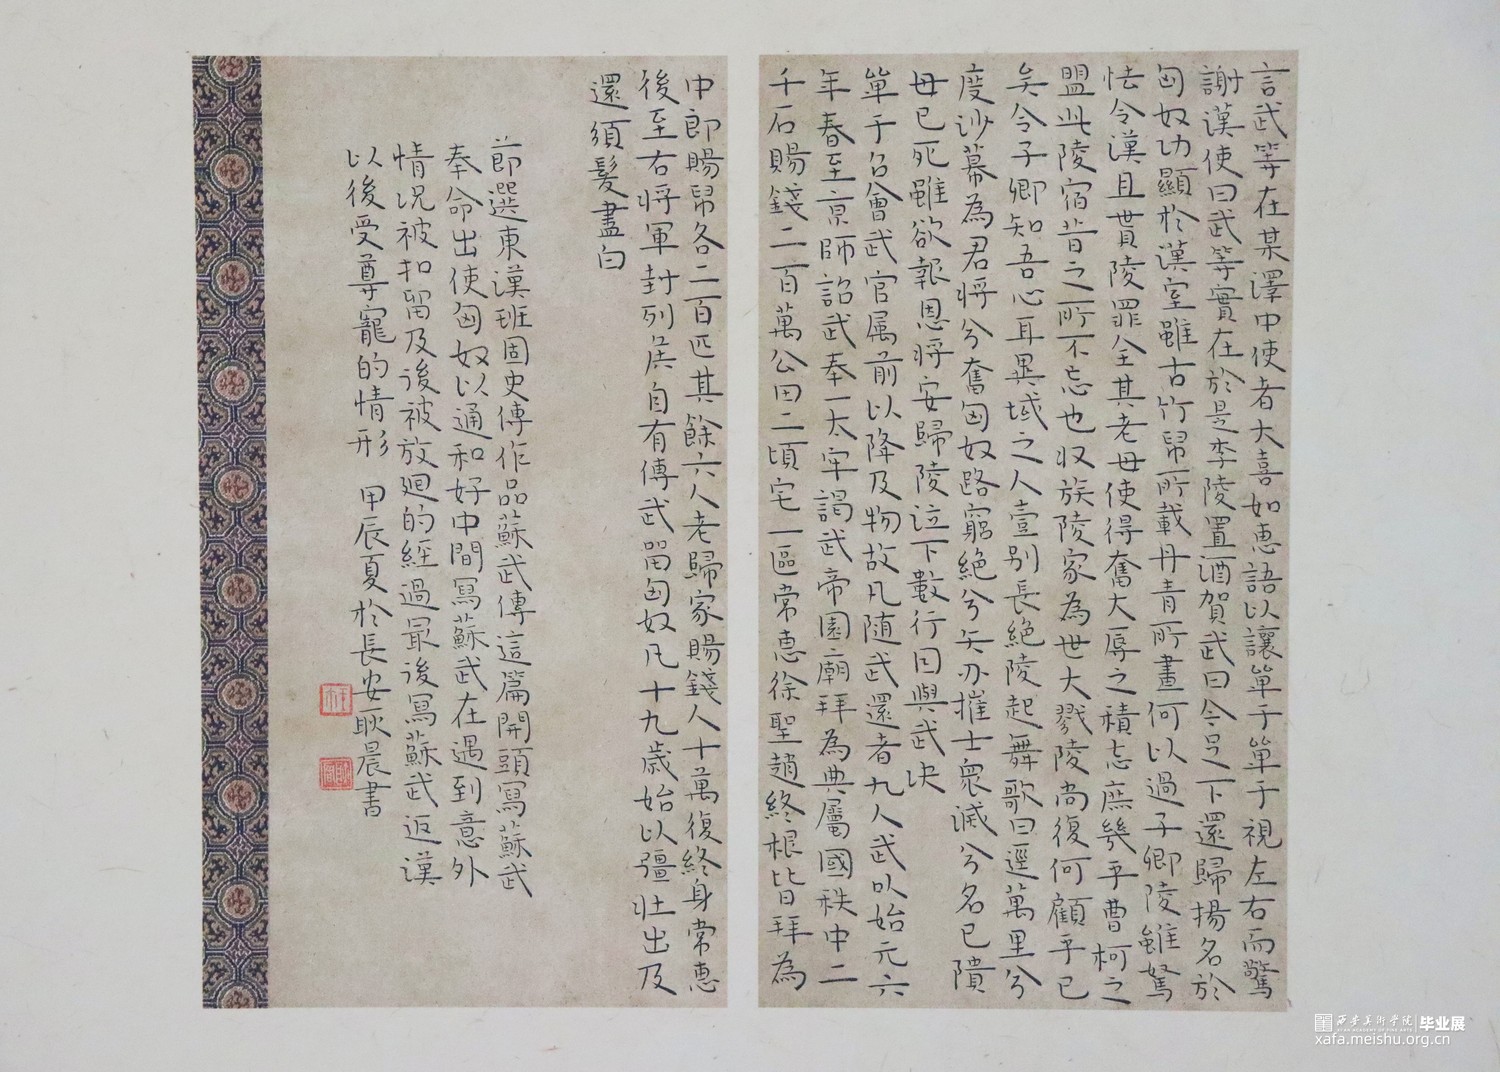 言武等在某澤中使者大喜如惠語以讓單于單于視左右而驚
謝漢使曰武等實在於是李陵置酒賀武曰今足下還歸揚名於
匈奴功顯於漢室雖古竹帛所載丹青所畫何以過子卿陵雖駑
怯令漢且貰陵罪全其老母使得奮大辱之積志庶幾乎曹柯之
盟此陵宿昔之所不忘也収族陵家為世大戮陵尚復何顧乎已
矣令子卿知吾心耳異域之人壹别長絶陵起舞歌曰逕萬里兮
度沙幕為君將兮奮匈奴路窮絶兮矢刃摧士衆滅兮名已隤
母已死雖欲報恩將安歸陵泣下數行因與武决
單于召會武官属前以降及物故凡随武還者九人武以始元六
年春至京師詔武奉一太牢謁武帝園廟拜為典屬國秩中二
千石賜錢二百萬公田二頃宅一區常惠徐聖趙終根皆拜為
中郎賜帛各二百匹其餘六人老歸家賜錢人十萬復終身常惠
後至右將軍封列侯自有傳武留匈奴凡十九歲始以彊壯出及
還須髮盡白
節選東漢班固史傳作品蘇武傳這篇開頭寫蘇武
奉命出使匈奴以通和好中間寫蘇武在遇到意外
情况被扣留及後被放廻的經過最後寫蘇武返漢
以後受尊寵的情形 甲辰夏於長安耿晨書
西安美術學院 毕业展
XI'AN ACADEMY OF FINE ARTS
xafa.meishu.org.cn